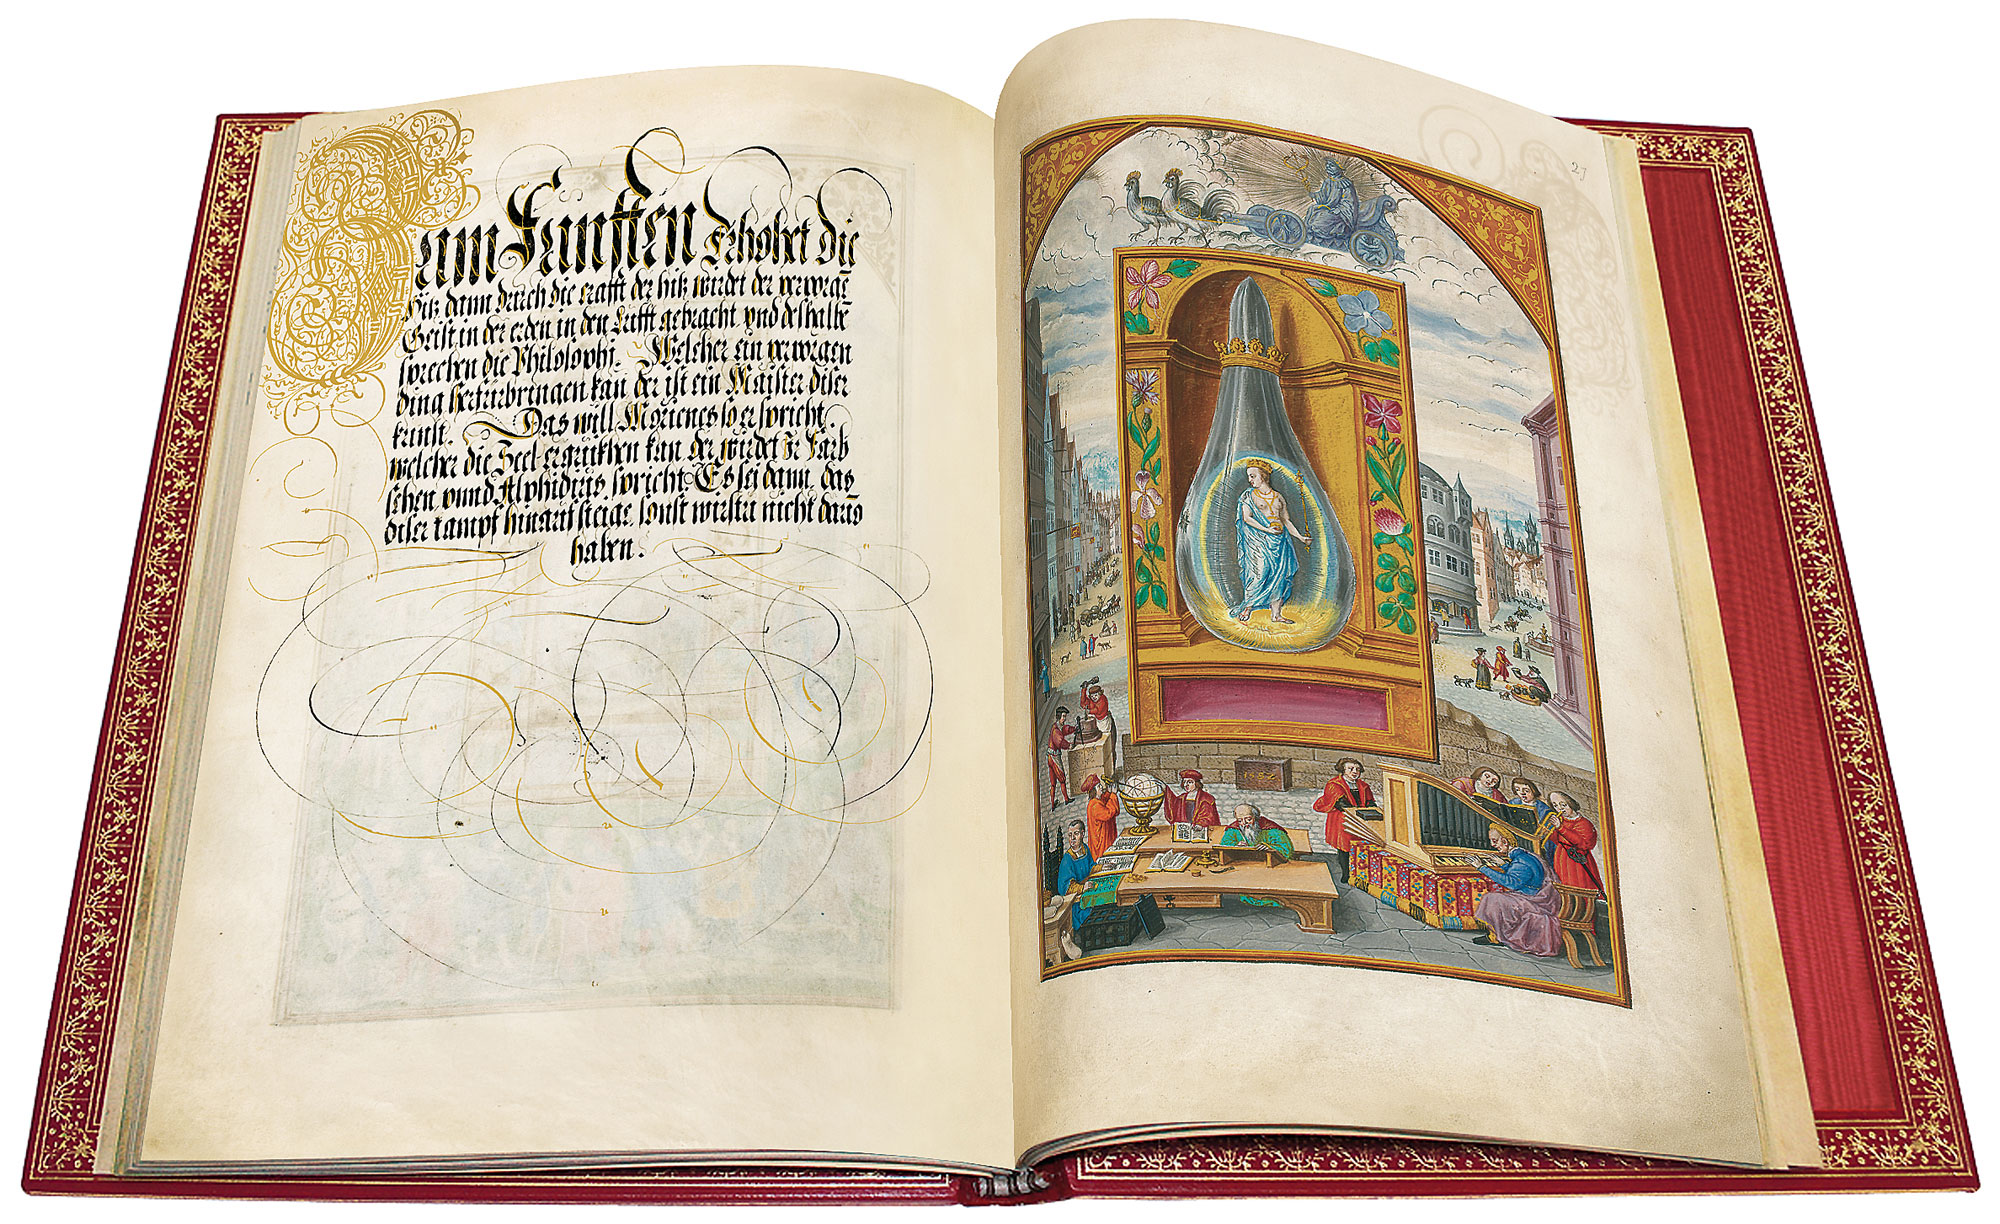 Zum Feünfften Erhohet die
Hitz dann durch die crafft der hitz wirdet der verporgñ
Geist in der erden in den Lufft gebracht vnd deshalbē
sprechen die Philosophi. Welcher ein verporgen
ding herfürbringen kan der ist ein Maister diser
kunst. Das will Morienes so er spricht.
welcher die Seel erquikhen kan der wirdet Farb
sehen vnnd Alphidius, spricht. Es sei dann, das
diser dampf hinauf steige, sonst wirstu nicht
haben.
27